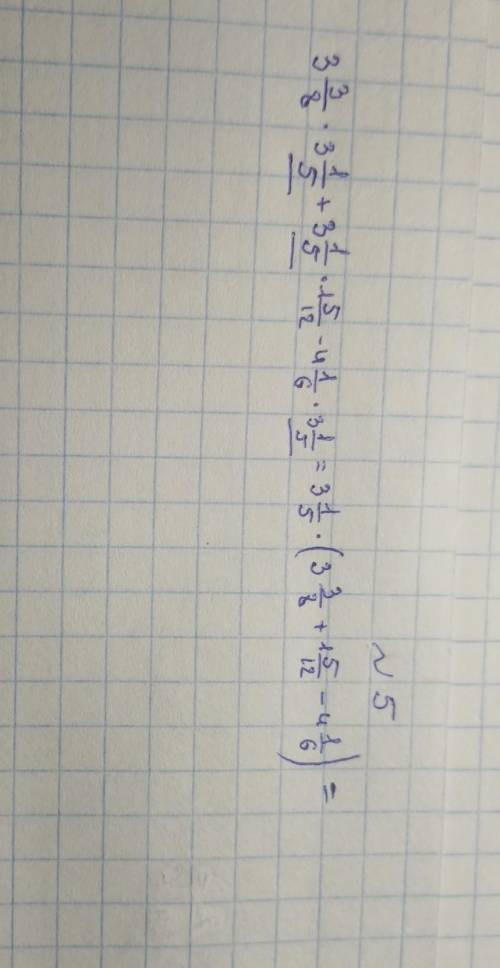 ~ 5
3 3/8 · 3 1/5 + 3 1/5 · 1 5/12 - 4 1/6 · 3 1/5 = 3 1/5 · (3 3/8 + 1 5/12 - 4 1/6) =